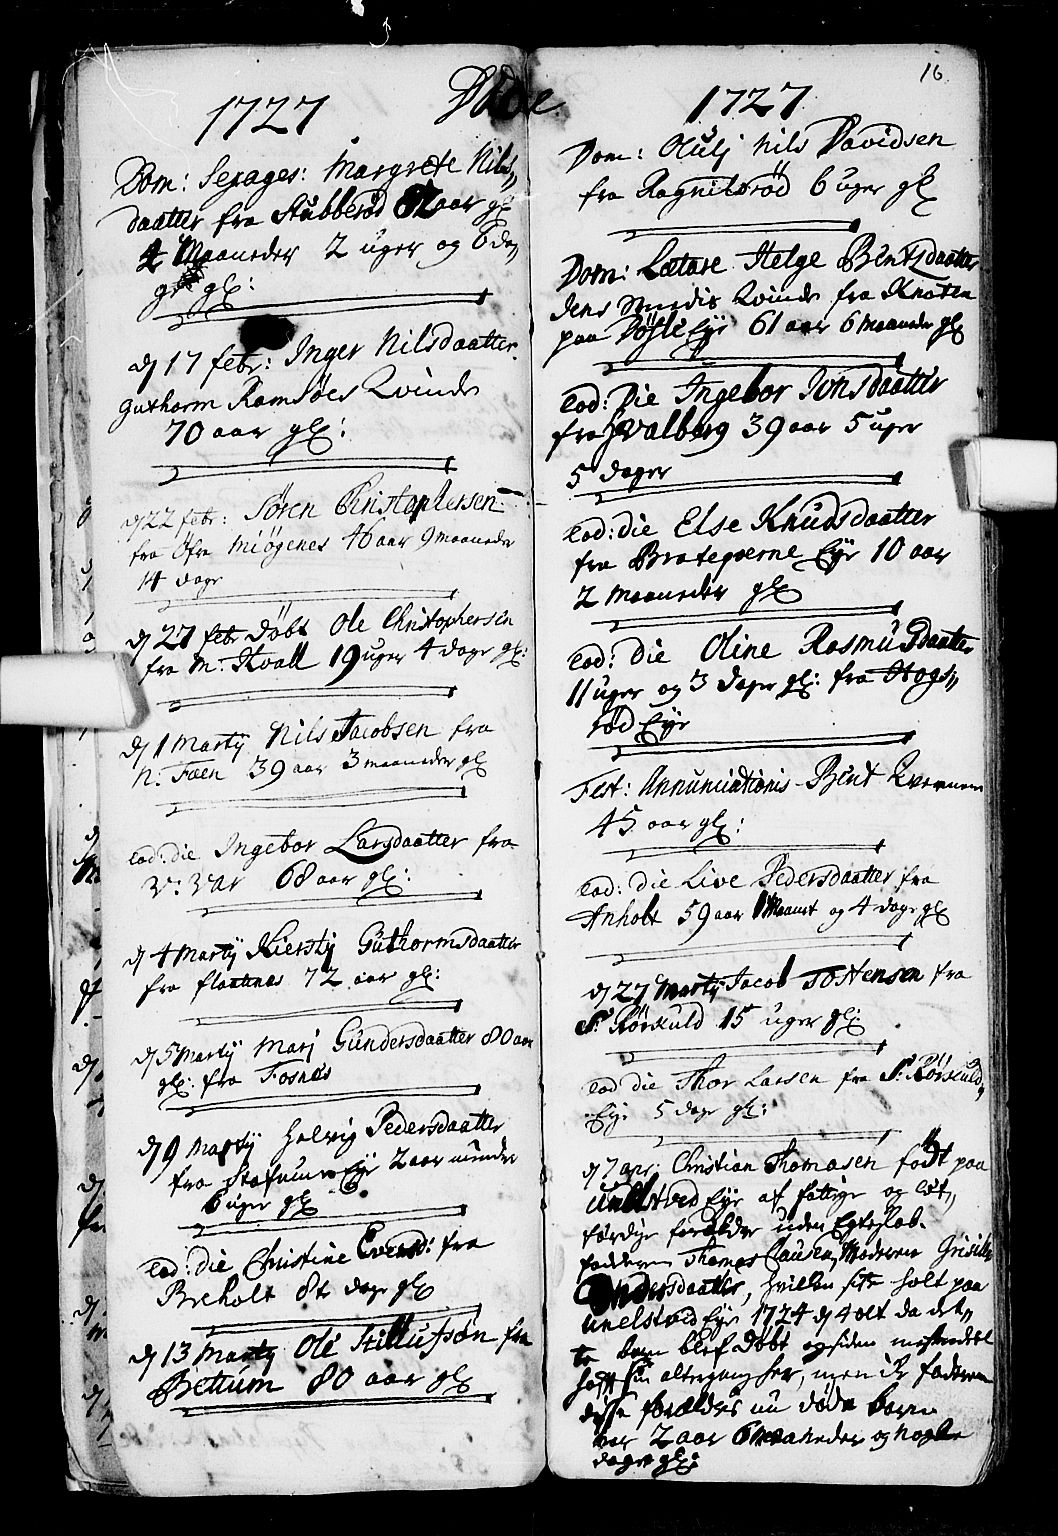 16
Døde
1727
Dom: Sexages: Margrete Nils,,
daatter fra Stubberød 82 aar gl
4 Maaneder 2 uger og 6 da,,
ge gl:
d 17 febr: Inger Nilsdaatter
Guthorm Ramsøes Qvinde
70 aar gl:
d 22 febr: Søren Christophersen
fra Øfre Miøgenes 46 aar 9 maaneder
14 dage
d 27 febr døbt Ole Christophersen
fra M: Qvall 19 uger 4 dage gl:
d 1 Martij Nils Jacobsen fra
N: Foen 39 aar 3 maaneder gl
Eod: die Ingebor Larsdaatter fra
68 aar gl:
d 4 Martij Kiersty Guthormsdaatter
fra flaatnes 72 aar gl:
d 5 Martij Marj Gundersdaatter 80 aar
gl: fra Fosnes
d 9 Martij Helvig Pedersdaatter
fra Eje 2 aar minder
6 uger gl
Eod: die Christine Everts: fra
Breholt 8te dage gl
d 13 Martij Ole fra
Bettum 80 aar gl
1727
Dom: Oculj Nils Davidsen
fra Ragnilsrød 6 uger gl
Dom: Lætare Helge Bentsdaatter
Jens Qvinde fra Knaten
paa Bøsle Eje 61 aar 6 maaneder gl
Eod: Die Ingebor Jonsdaatter
fra Hvalberg 39 aar 5 uger
5 dager
Eod: die Else Knudsdaatter
fra Brategierne Eje 10 aar
2 maaneder gl
Eod: die Oline Rasmusdaatter
11 uger og 3 dage gl: fra Hogs,,
rød Eje
Fest: Annunciationis Bent Qvernenes
45 aar gl:
Eod: die Live Pedersdaatter fra
Anholt 59 aar 1 Maanet og 4 dage gl
d 27 Martij Jacob Tostensen fra
S: Rørkuld 15 uger gl:
Eod die Thor Larsen fra S: Rørkuld,,
Eje 5 dage gl:
d 7 apr: Christian Thomasen født paa
Unelstved Eje af fattige og løt,,
færdige forældre uden Egteskab.
faderen Thomas Clausen, Moderen Grisille
Andersdaatter, hvilken sitt holt paa
unelstvid Eje 1724 d 4 olt da det,,
te barn blef døbt og siden
hafft sin altergang her, men de faderen
disse forældres nu døde barn
var 2 aar 6 maaneder og nogle
dage gl: